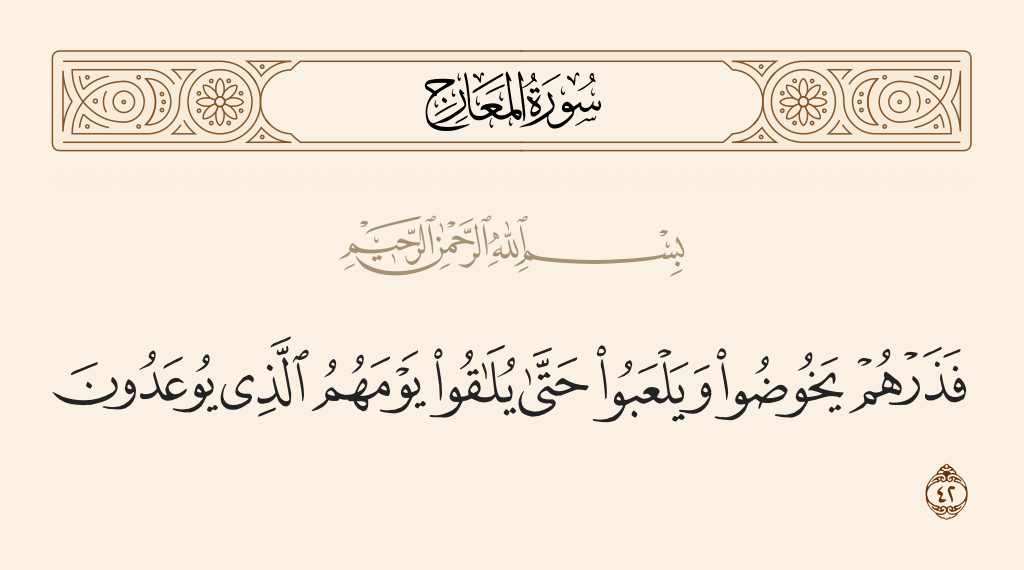 سُورَةُ المَعَارِجِ
بِسْمِ ٱللَّهِ ٱلرَّحْمَٰنِ ٱلرَّحِيمِ
فَذَرْهُمْ يَخُوضُوا۟ وَيَلْعَبُوا۟ حَتَّىٰ يُلَـٰقُوا۟ يَوْمَهُمُ ٱلَّذِى يُوعَدُونَ
٤٢